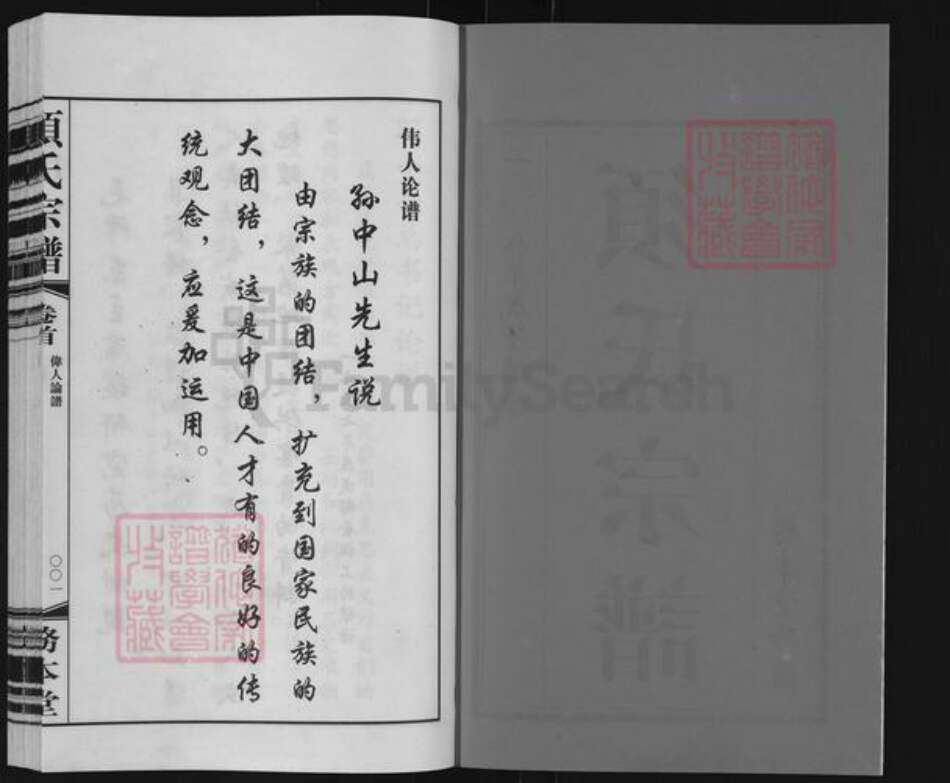 伟人论谱
孙中山先生说
由宗族的团结，扩充到国家民族的
大团结，这是中国人才有的良好的传
统观念，应爰加运用。
氏宗譜
卷首
偉人論譜
〇〇一
務本堂
FamilySearch
譜學會
收藏
譜學會
收藏